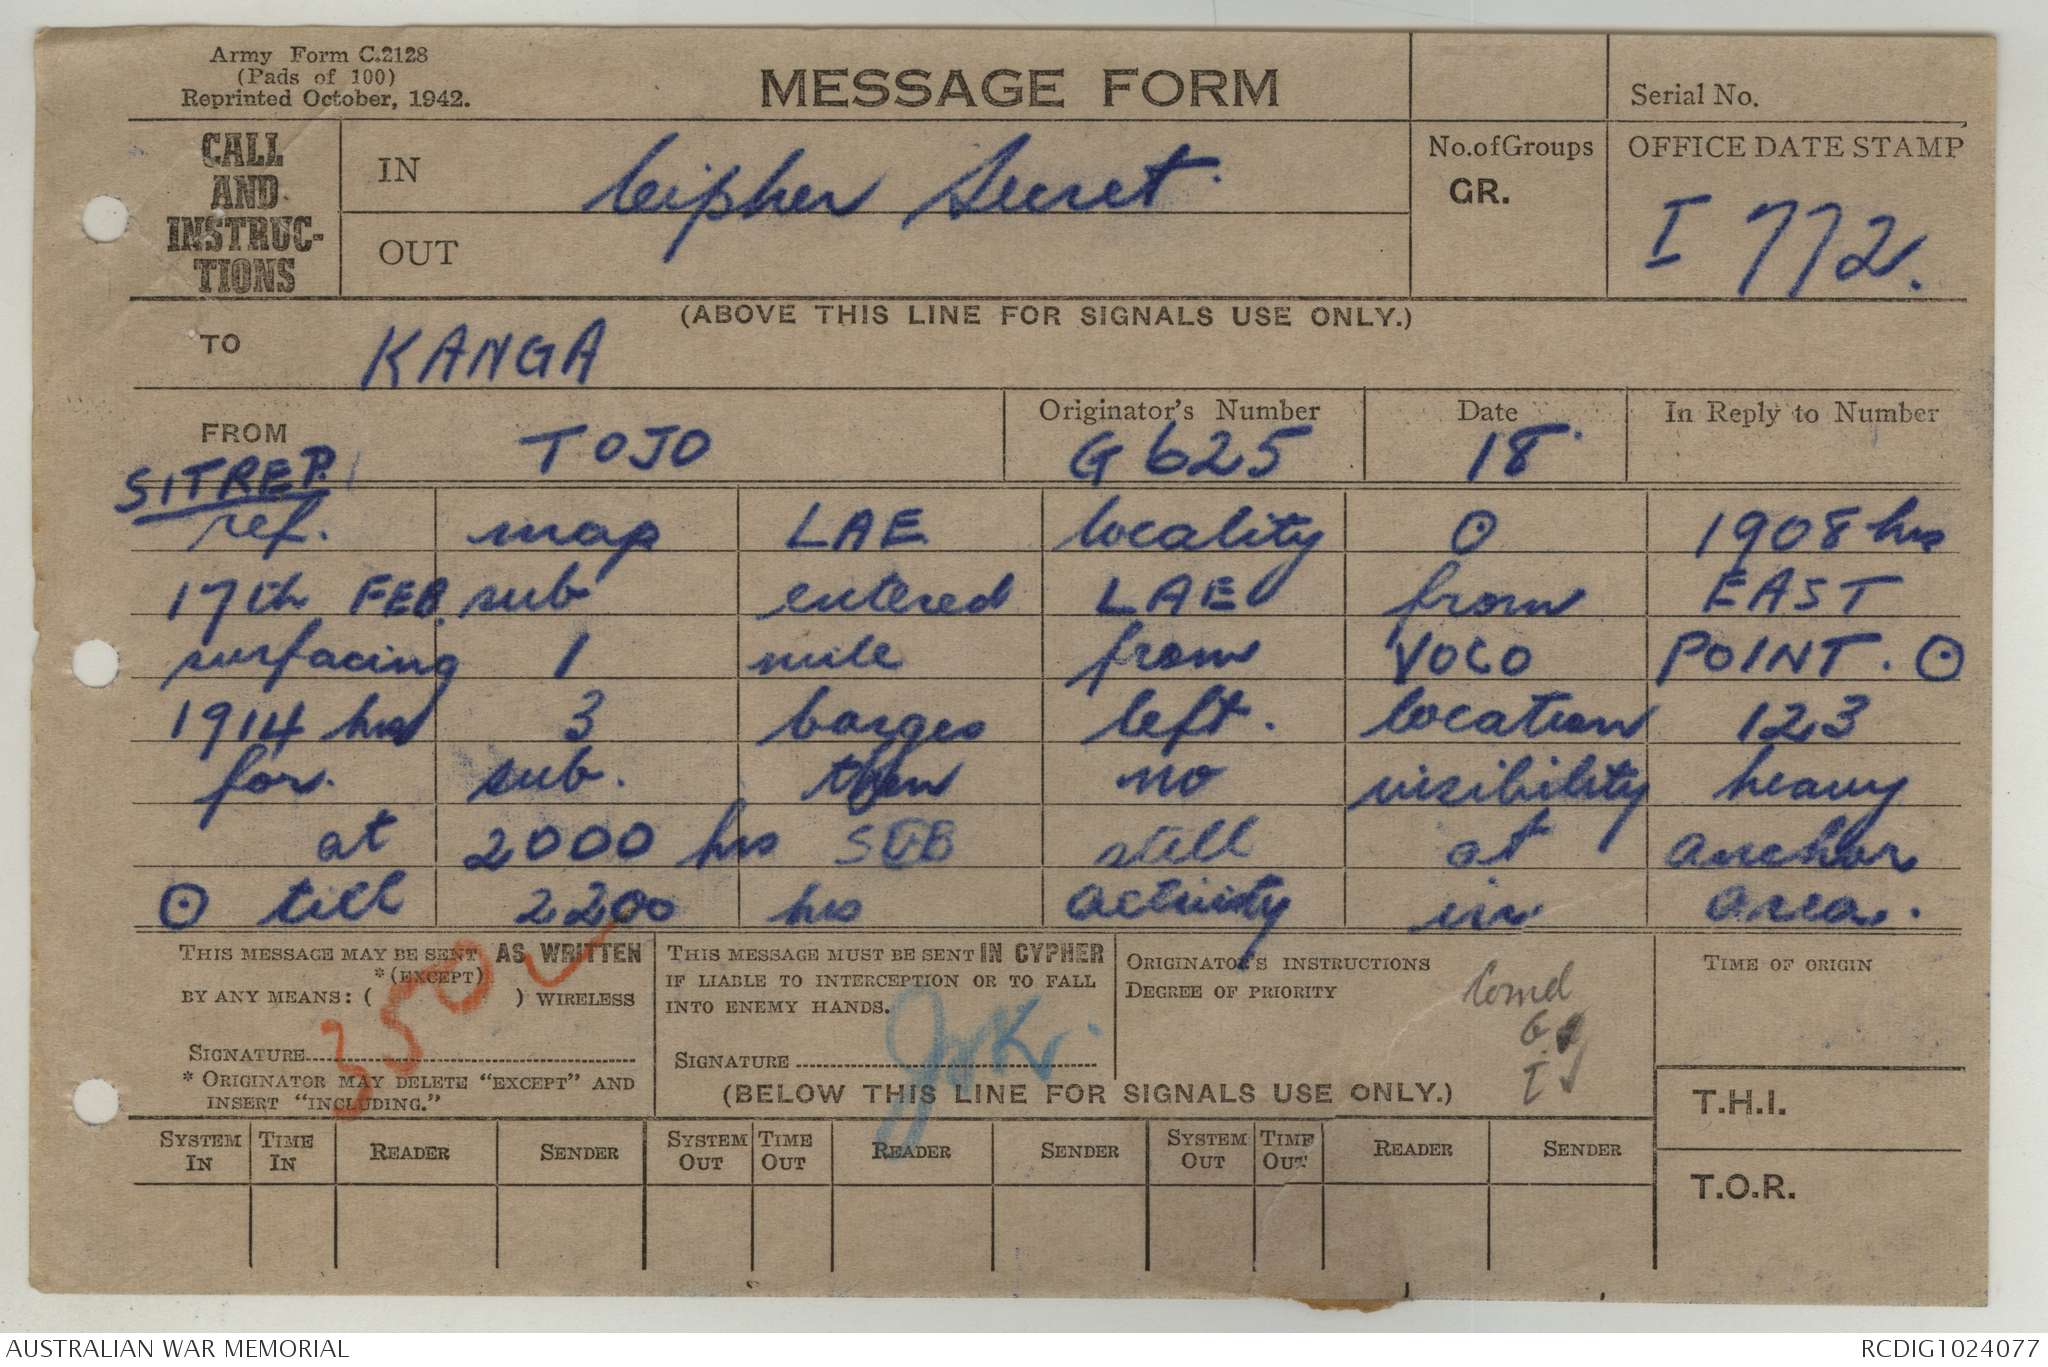 Army Form C.2128
(Pads of 100)
Reprinted October, 1942.
MESSAGE FORM
Serial No.
CALL
AND
INSTRUC-
TIONS
IN
OUT
Cipher Secret.
No. of Groups
GR.
OFFICE DATE STAMP
I 772.
(ABOVE THIS LINE FOR SIGNALS USE ONLY.)
TO KANGA
FROM TOJO
Originator's Number
G 625
Date
18
In Reply to Number
SITREP.
ref. map LAE locality ⊙ 1908 hrs
17th FEB. sub entered LAE from EAST
surfacing 1 mile from VOCO POINT. ⊙
1914 hrs 3 barges left. location 123
for. sub. then no visibility heavy
at 2000 hrs SUB still at anchor
⊙ till 2200 hrs activity in area.
THIS MESSAGE MAY BE SENT AS WRITTEN
*(EXCEPT)
BY ANY MEANS: ( ) WIRELESS
SIGNATURE
* ORIGINATOR MAY DELETE "EXCEPT" AND
INSERT "INCLUDING."
350
THIS MESSAGE MUST BE SENT IN CYPHER
IF LIABLE TO INTERCEPTION OR TO FALL
INTO ENEMY HANDS.
SIGNATURE
ORIGINATOR'S INSTRUCTIONS
DEGREE OF PRIORITY
Comd
G
I
TIME OF ORIGIN
(BELOW THIS LINE FOR SIGNALS USE ONLY.)
T.H.I.
T.O.R.
SYSTEM IN
TIME IN
READER
SENDER
SYSTEM OUT
TIME OUT
READER
SENDER
SYSTEM OUT
TIME OUT
READER
SENDER
AUSTRALIAN WAR MEMORIAL
RCDIG1024077